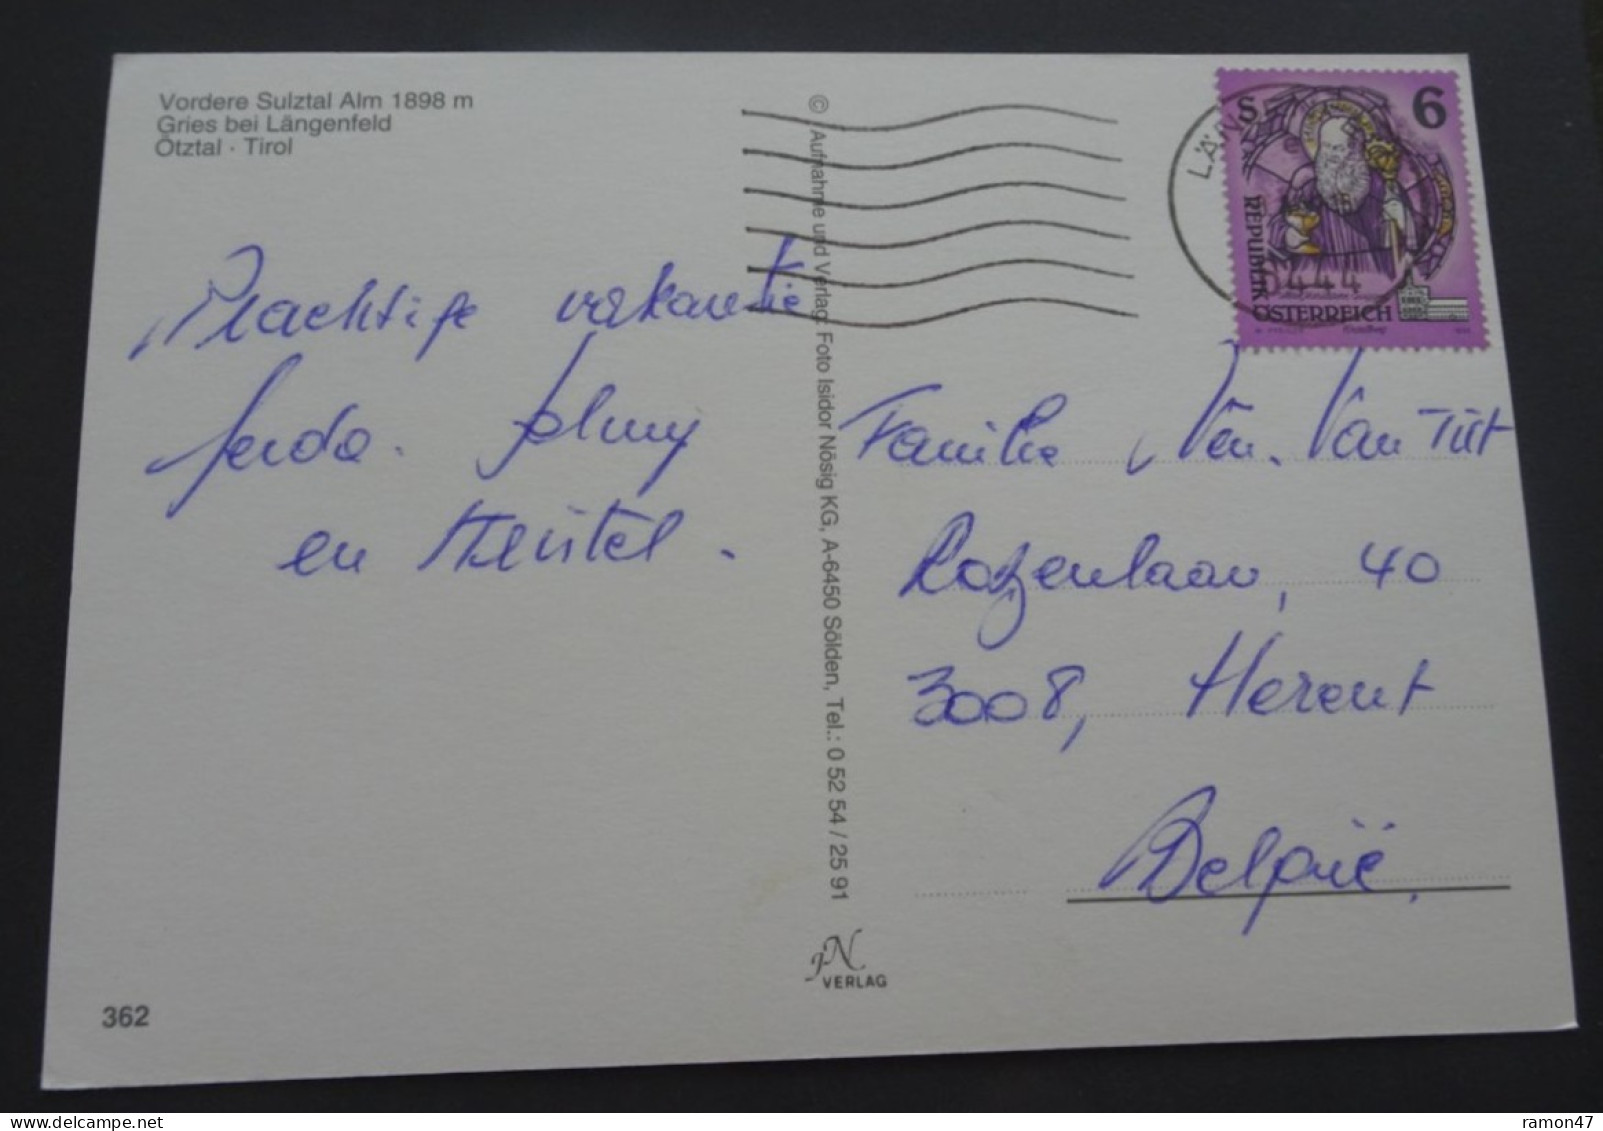 Vordere Sulztal Alm 1898 m
Gries bei Längenfeld
Ötztal · Tirol
Prachtige vakantie
Gerda. Johny
en Kristel.
© Aufnahme und Verlag: Foto Isidor Nösig KG, A-6450 Sölden, Tel.: 0 52 54 / 25 91
LÄN
6444
S 6
REPUBLIK
ÖSTERREICH
Familie Van Tilt
Rozenlaan, 40
3008, Herent
België.
JN
VERLAG
362
delcampe.net
ramon47